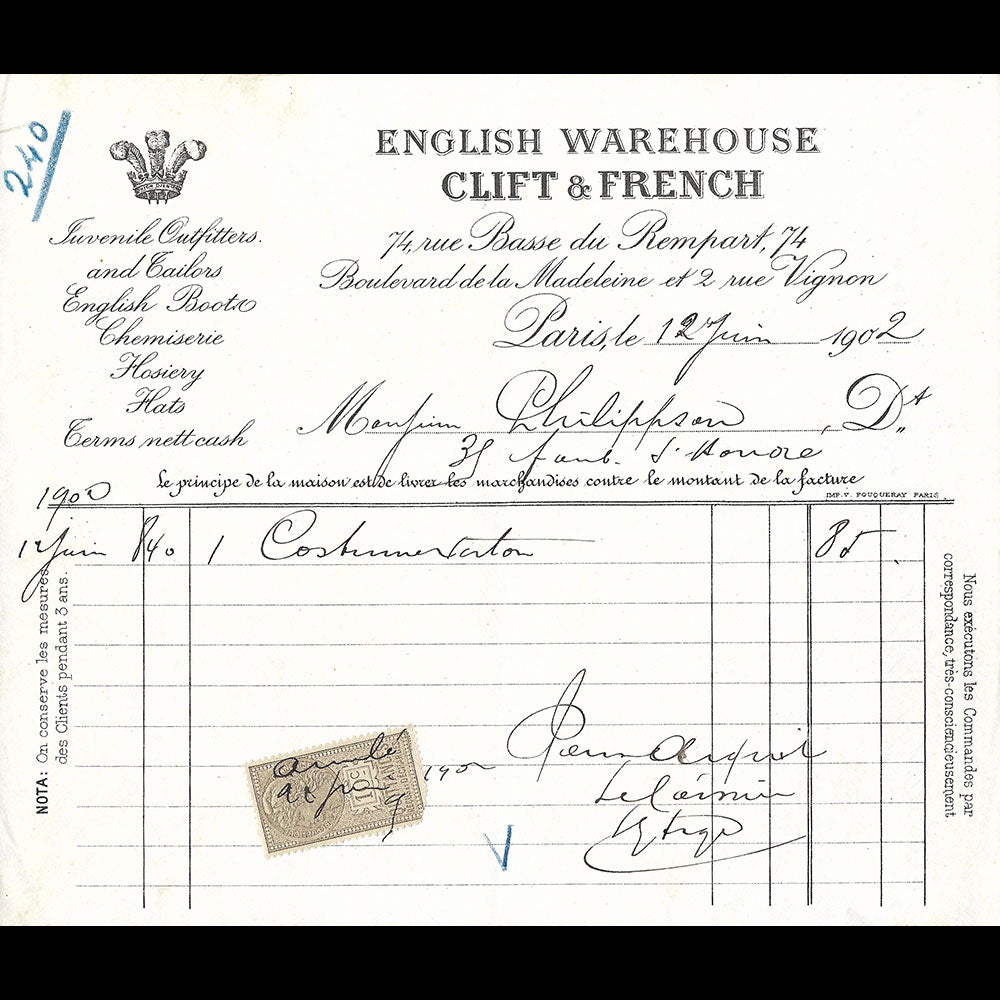 240
ENGLISH WAREHOUSE
CLIFT & FRENCH
74, rue Basse du Rempart, 74
Boulevard de la Madeleine et 2 rue Vignon
Juvenile Outfitters.
and Tailors
English Boots
Chemiserie
Hosiery
Hats
Terms nett cash
Paris, le 12 Juin 1902
Monsieur Philippson, Dt
35 faub. St Honoré
le principe de la maison est de livrer les marchandises contre le montant de la facture
IMP. V. FOUQUERAY PARIS.
1902
12 Juin 840 1 Costume 85
NOTA: On conserve les mesures
des Clients pendant 3 ans.
Nous exécutons les Commandes par
correspondance, très-consciencieusement
Pour Acquit
Le Caissier
10c
1902